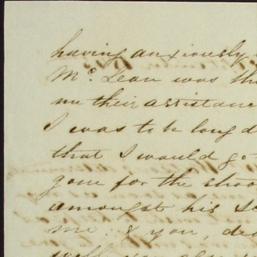 having anxiously
Mc. Lean was th
me their assistance
I was to be long d
that I would go
gone for the
amongst his
me. & you, de